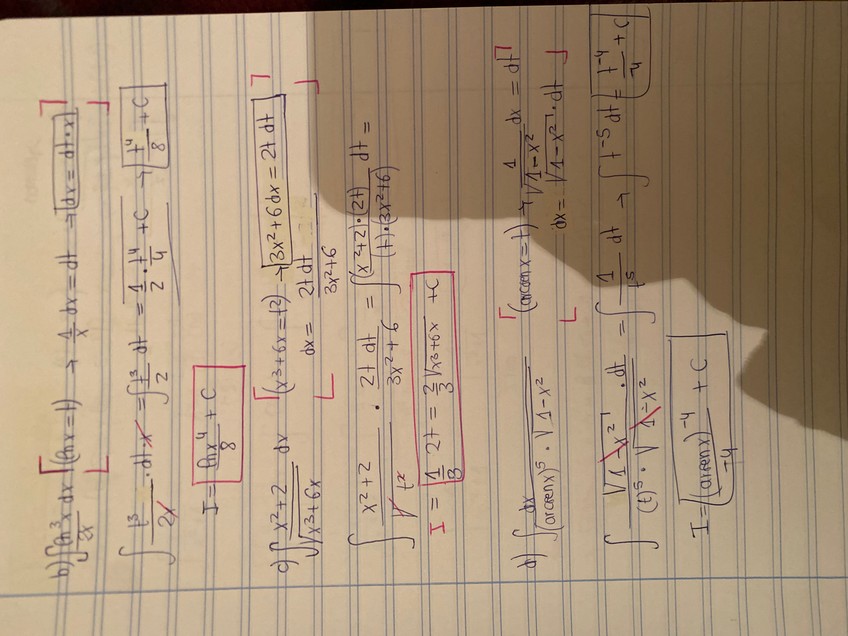 b) ∫ ln³x/2x dx [(ln x = t) → 1/x dx = dt → dx = dt·x]
∫ t³/2x · dt·x = ∫ t³/2 dt = 1/2 · t⁴/4 + C → t⁴/8 + C
I = ln x⁴/8 + C
c) ∫ x²+2/√x³+6x dx [(x³+6x = t²) → 3x²+6 dx = 2t dt
dx = 2t dt/3x²+6]
∫ x²+2/√t² · 2t dt/3x²+6 = ∫ (x²+2)·(2t)/(t)·(3x²+6) dt =
I = 1/3 2t = 2/3 √x³+6x + C
d) ∫ dx/(arcsen x)⁵ · √1-x² [(arcsen x = t) → 1/√1-x² dx = dt
dx = √1-x² · dt]
∫ √1-x² · dt/(t)⁵ · √1-x² = ∫ 1/t⁵ dt → ∫ t⁻⁵ dt = t⁻⁴/-4 + C
I = (arcsen x)⁻⁴/-4 + C